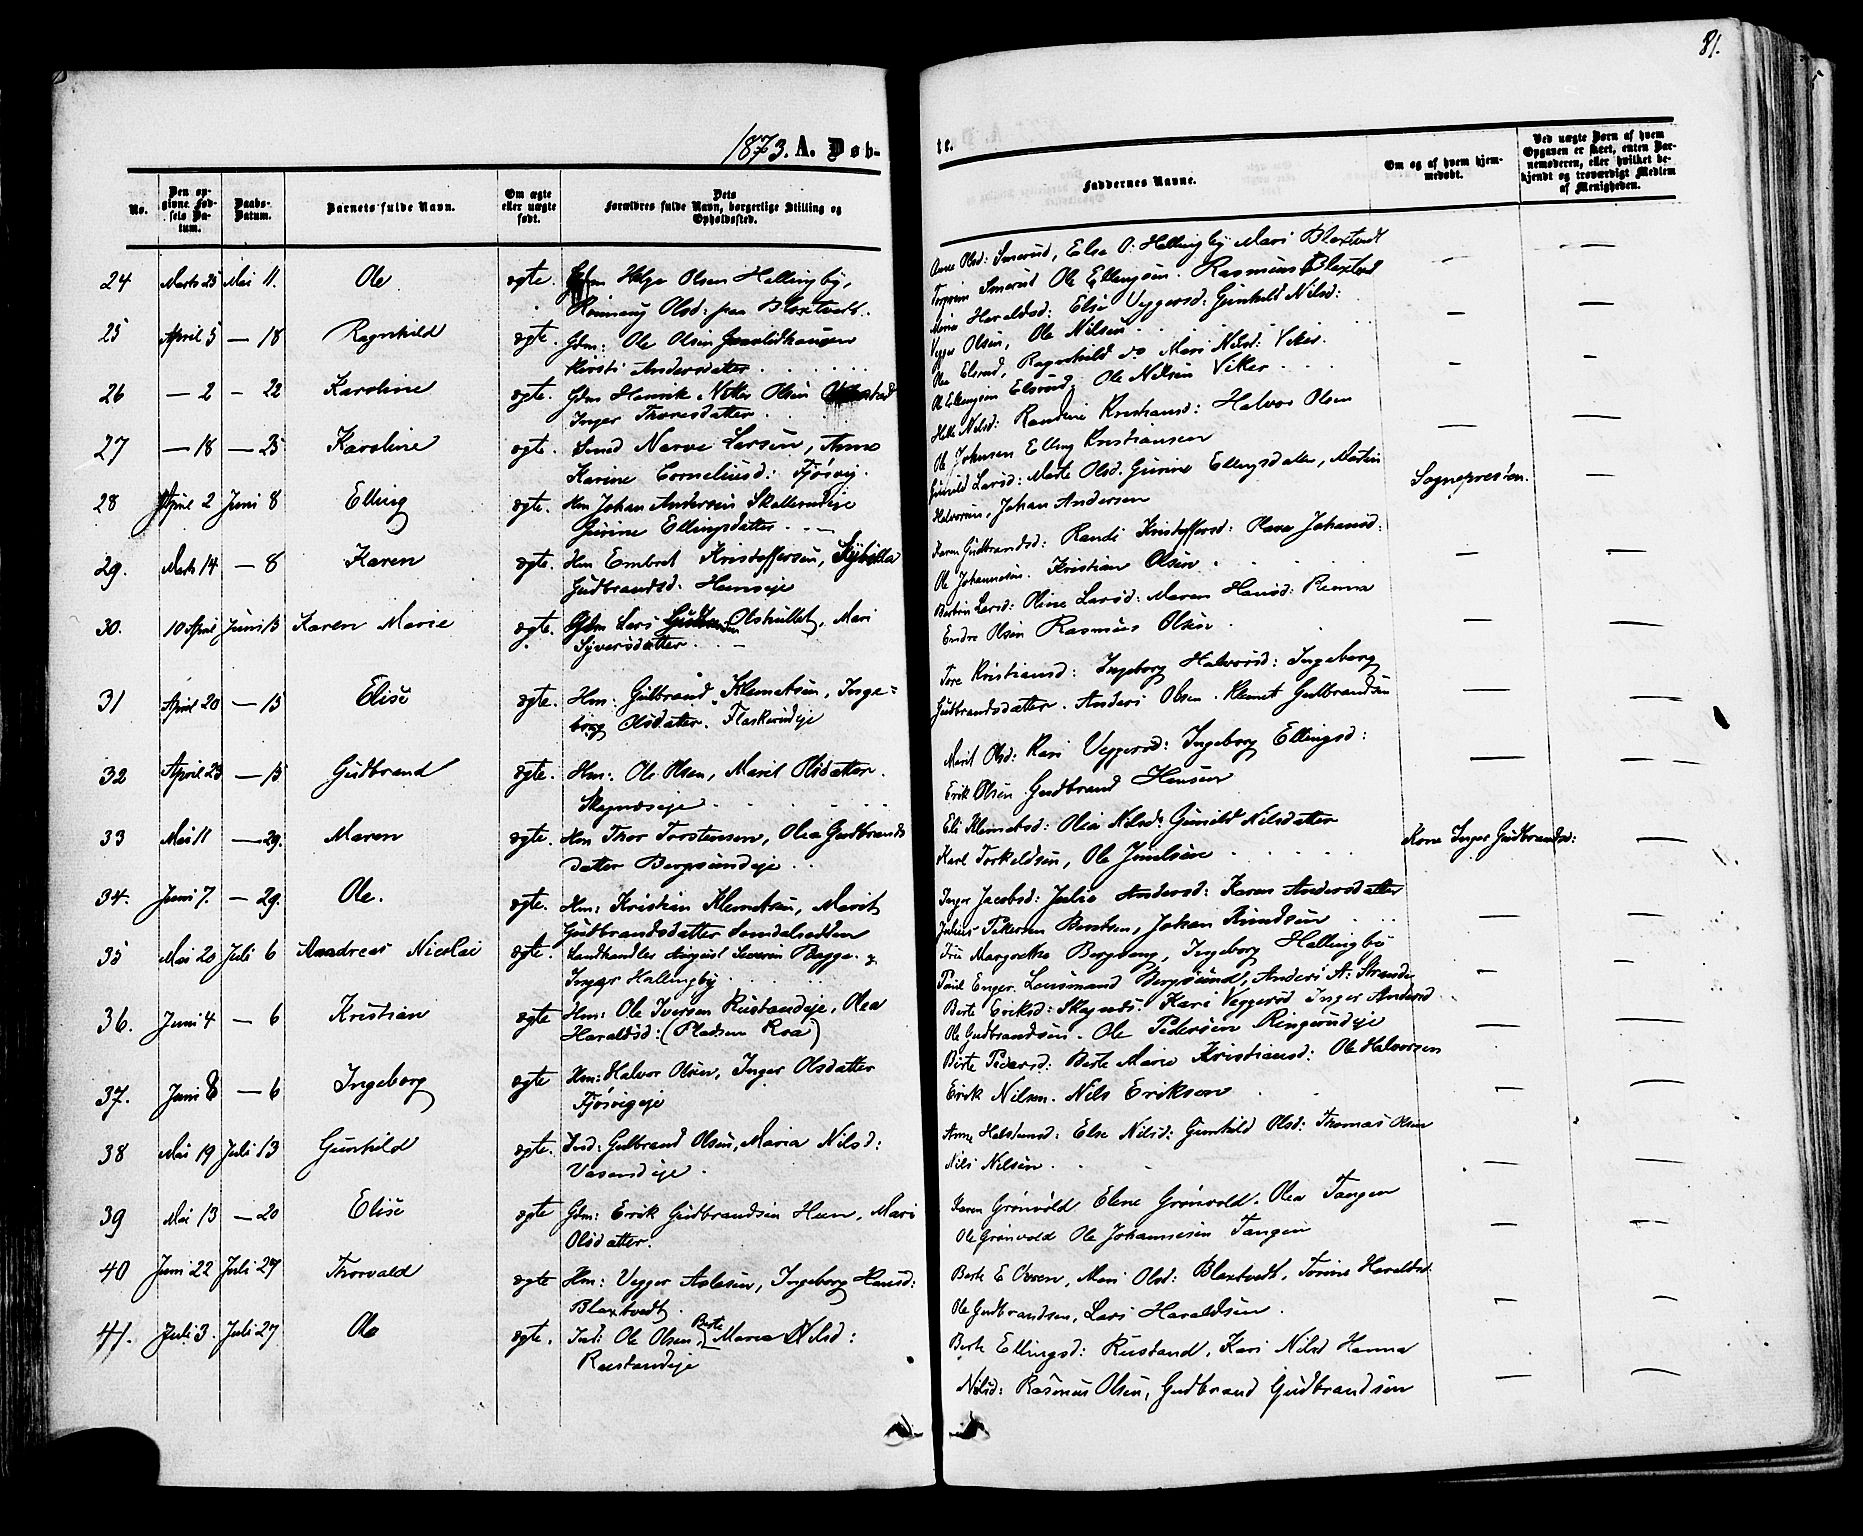 81.
1873. A. Døb-
te.
No.
Den opgivne Fødsels Datum.
Daabs-Datum.
Barnets fulde Navn.
Om ægte eller uægte født.
Dets Forældres fulde Navn, borgerlige Stilling og Opholdssted.
Faddernes Navne.
Om og af hvem hjemmedøbt.
Ved uægte Børn af hvem Opgaven er skeet, enten Barnemoderen, eller hvilket bekjendt og troværdigt Medlem af Menigheden.
24 Marts 25 Mai 11. Ole ægte. Gdm Helge Olsen Hallingby,
Olsd: fra Blaxtvedt.
Anne Olsd: Smerud, Else O: Hallingby Mari Blaxtvedt
Smerud Ole Ellingsen. Rasmus Blaxtved
25 April 5 — 18 Ragnhild ægte. Gdm: Ole Olsen
Kirsti Andersdatter
Maria Haraldsd: Else Veggersd: Gunhild Nilsd:
Vegger Olsen, Ole Nilsen
26 — 2 — 22 Karoline ægte. Gdm Henrik Olsen
Inger Thoresdatter
Elsrud, Ragnhild do Mari Nilsd: Viker.
Ole Ellingsen Elsrud, Ole Nilsen Viker
27 — 18 — 25 Karoline ægte. Smed Narve Larsen, Anne
Karine Corneliusd: Fjøsvig.
Helle Nilsd: Randine Kristiansd: Halvor Olsen
Ole Johnsen Elling Kristiansen
28 April 2 Juni 8 Elling ægte. Hm Johan Andersen Skallerudeje
Gurine Ellingsdatter
Gunild Larsd: Marte Olsd. Gurine Ellingsdatter, Martin
Halvorsen, Johan Andersen
Sognepresten.
29. Marts 14 — 8 Karen ægte. Hm Embret Kristoffersen, Sybilla
Gudbrandsd. Hunseje
Karen Gudbrandsd: Randi Kristoffersd: Olava Johansd:
Ole Johannesen. Kristian Olsen
30. 10 April Juni 15 Karen Marie ægte. Gdm Lars Olshullet, Mari
Syversdatter.
Berthe Larsd: Oline Larsd: Maren Hansd: Renna
Endre Olsen Rasmus Olsen
31 April 20 — 15 Elise ægte. Hm: Gulbrand Klemetsen, Inge-
borg Olsdatter. Flaskerudeje
Tore Kristiansd: Ingeborg Halvorsd: Ingeborg
Gudbrandsdatter. Anders Olsen. Klemet Gulbrandsen
32 April 23 — 15 Gudbrand ægte. Hm: Ole Olsen, Marit Olsdatter.
Skagnæseje
Marit Olsd: Kari Veggersd: Ingeborg Ellingsd:
Erik Olsen Gudbrand Hansen
33 Mai 11 — 29. Maren ægte. Hm Thor Torstensen, Olea Gudbrands
datter Bergsundeje
Eli Klemetsd: Olia Nilsd: Gunild Nilsdatter
Karl Torkeldsen, Ole Juulsen
Kone Inger Gudbrandsd:
34. Juni 7. — 29. Ole. ægte. Hm: Kristian Klemetsen, Marit
Gudbrandsdatter Semdalsødden
Inger Jacobsd: Julie Andersd: Karen Andersdatter
Julius Pettersen Berntsen, Johan Knudsen
35 Mai 20 Juli 6 Andreas Nicolai ægte. Landhandler August Severin Bagge. &
Inger Hallingby
Margrethe Bergvang, Ingeborg Hallingby
Paul Enger. Lensmand Bergsund, Anders A: Strande
36. Juni 4 — 6 Kristian ægte Hm: Ole Iversen Rustandeje, Olea
Haraldsd: (Pladsen Roa)
Berte Eriksd: Skagnæs. Kari Veggersd Inger Andersd
Ole Gudbrandsen. Ole Pedersen Ringerudeje
37. Juni 8 — 6 Ingeborg ægte Hm: Halvor Olsen, Inger Olsdatter
Fjøsvigeje
Berte Pedersd: Berte Marie Kristiansd: Ole Halvorsen
Erik Nilsen. Nils Eriksen
38 Mai 19 Juli 13 Gunhild ægte. Ind: Gulbrand Olsen, Maria Nilsd:
Vasendeje.
Anne Halstensd: Else Nilsd: Gunhild Olsd: Thomas Olsen
Nils Nilsen.
39 Mai 13 — 20 Elise ægte Gdm: Erik Gudbrandsen Heen, Mari
Olsdatter.
Karen Grønvold Elene Grønvold. Olea Tangen
Ole Grønvold Ole Johannesen Tangen
40 Juni 22 Juli 27 Thorvald ægte Hm: Vegger Aslesen, Ingeborg Hansd:
Blaxtvedt.
Berte E Oveen, Mari Olsd: Blaxtvedt, Torine Haraldsd.
Ole Gudbrandsen, Lars Haraldsen.
41. Juli 3. Juli 27 Ole ægte. Ind: Ole Olsen Berte Maria Nilsd:
Rustandeje
Berte Ellingsd: Rustand, Kari Nilsd Hanna
Nilsd: Rasmus Olsen, Gudbrand Gudbrandsen